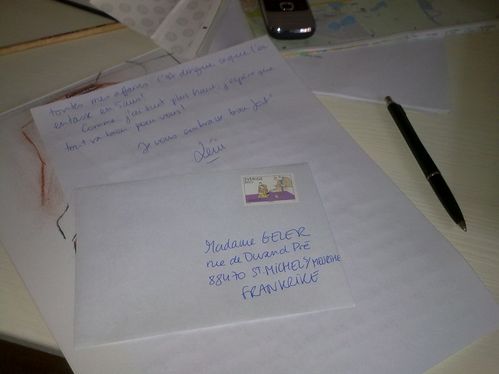 toutes mes affaires. C'est dingue ce que l'on
entasse en 5 ans!
Comme j'ai dit plus haut, j'espère que
tout va bien pour vous!
Je vous embrasse bien fort
SVERIGE
Madame GELER
rue de Durand Pré
88470 ST. MICHEL/MEURTHE
FRANKRIKE